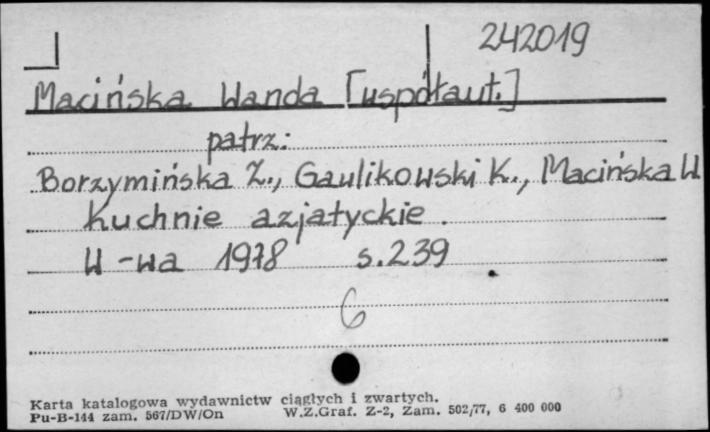 242019
Macińska Wanda [współaut.]
patrz:
Borzymińska Z., Gawlikowski K., Macińska W
Kuchnie azjatyckie.
W-wa 1978 s.239
6
Karta katalogowa wydawnictw ciągłych i zwartych.
Pu-B-144 zam. 567/DW/On W.Z.Graf. Z-2, Zam. 502/77, 6 400 000